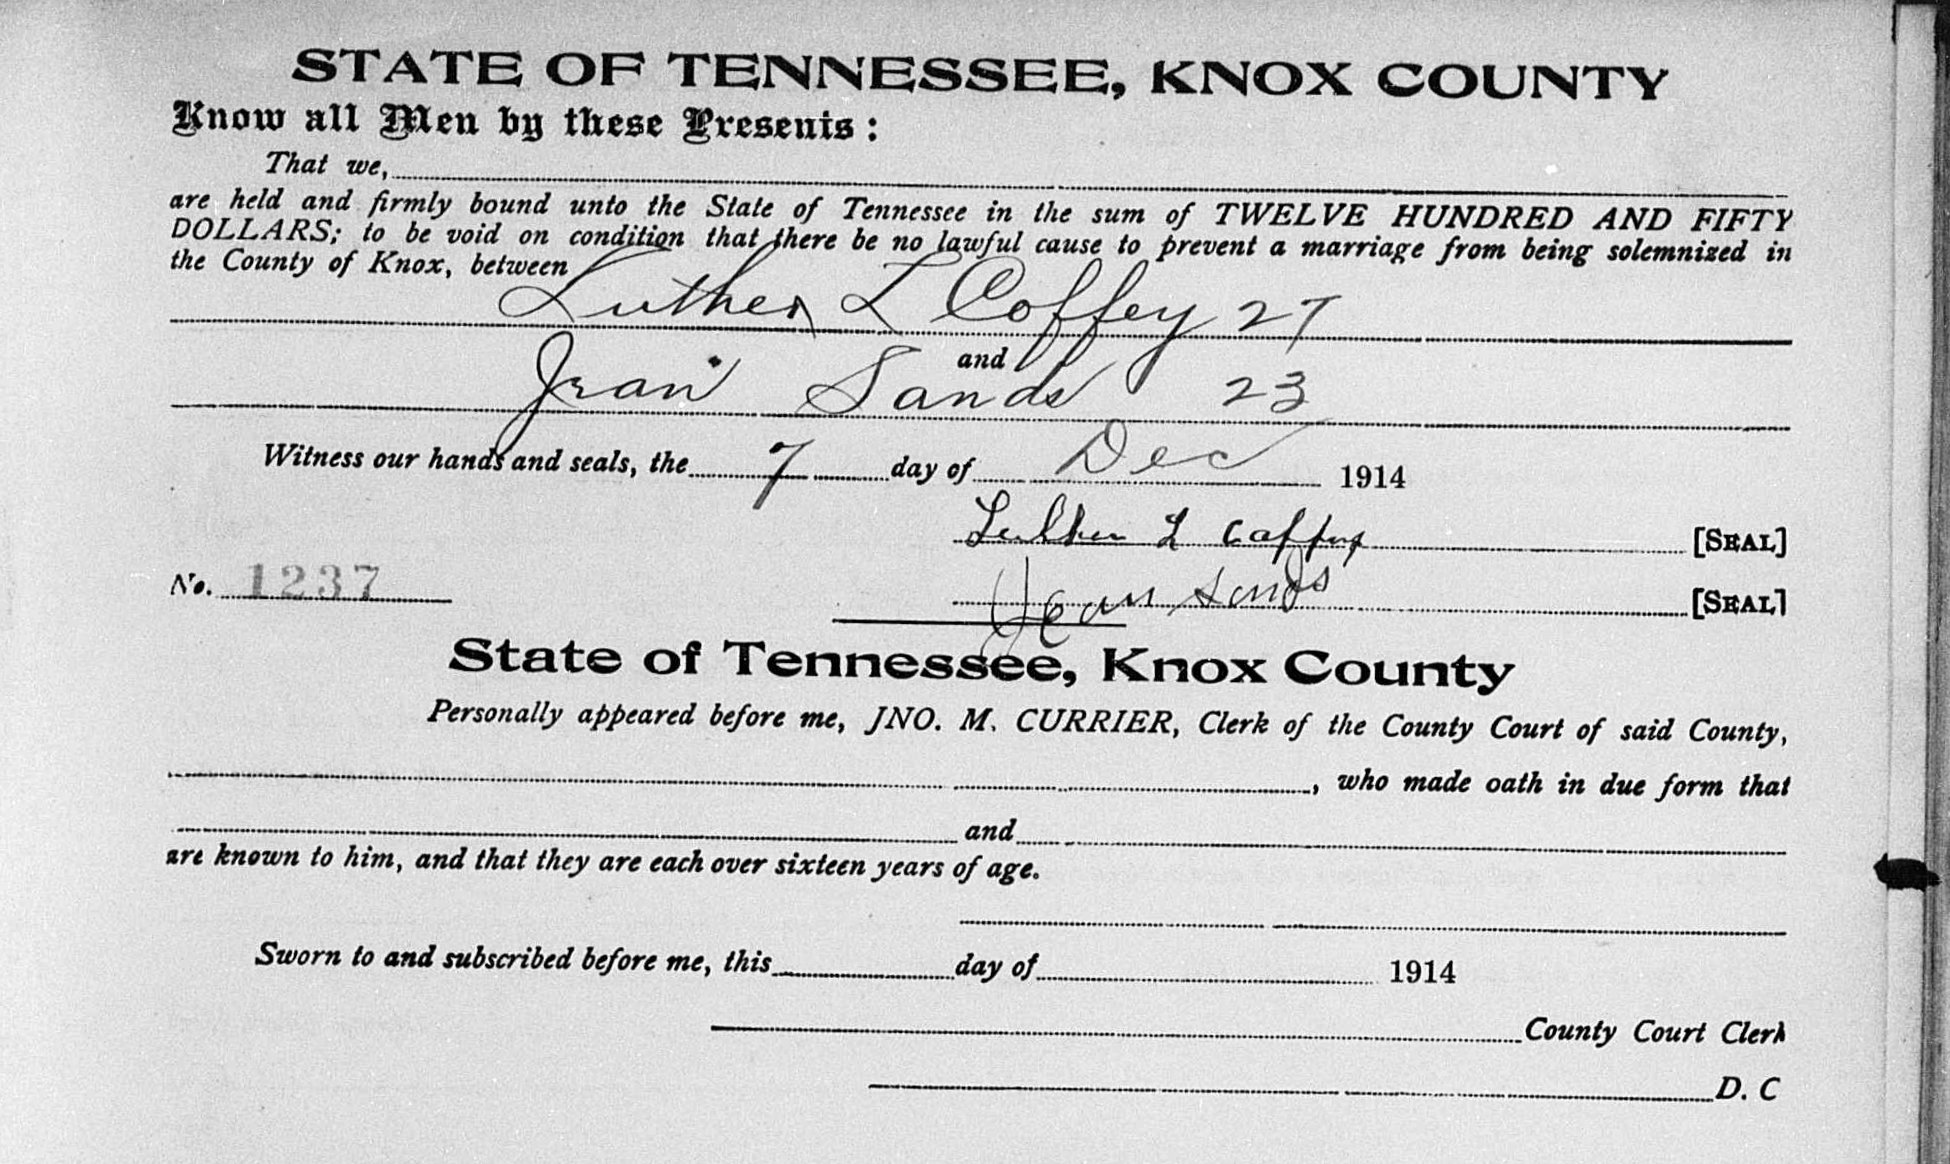 STATE OF TENNESSEE, KNOX COUNTY
Know all Men by these Presents:
That we,
are held and firmly bound unto the State of Tennessee in the sum of TWELVE HUNDRED AND FIFTY
DOLLARS; to be void on condition that there be no lawful cause to prevent a marriage from being solemnized in
the County of Knox, between
Luther L Coffey 27
and
Jean Sands 23
Witness our hands and seals, the 7 day of Dec 1914
Luther L Coffey [SEAL]
No. 1237
Jean Sands [SEAL]
State of Tennessee, Knox County
Personally appeared before me, JNO. M. CURRIER, Clerk of the County Court of said County,
, who made oath in due form that
and
are known to him, and that they are each over sixteen years of age.
Sworn to and subscribed before me, this day of 1914
County Court Clerk
D. C